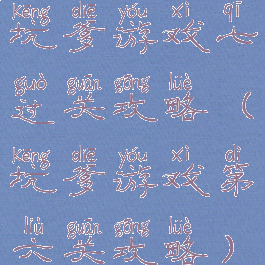 kēng diē yóu xì qī
坑爹游戏七
guò guān gōng lüè
过关攻略（
kēng diē yóu xì dì
坑爹游戏第
liù guān gōng lüè
六关攻略）